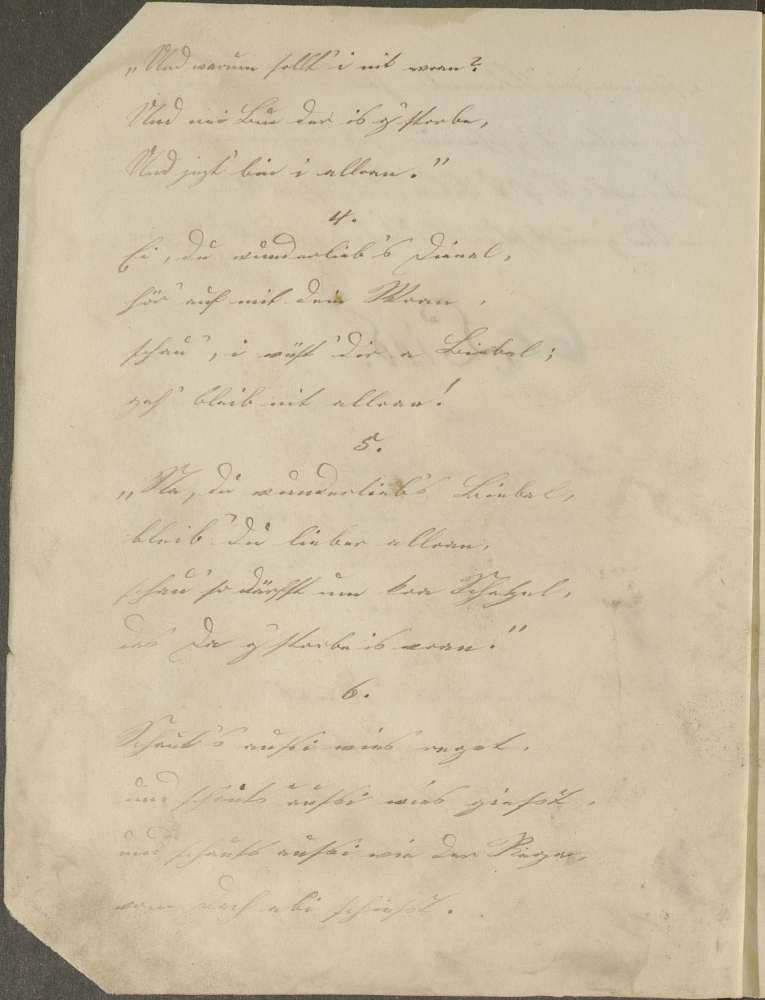 „Und warum sollt' i nit woan?
Und mei Bua der is g'storbe,
Und jezt bin i alloan."
4.
Ei, du wunderlieb's Dienal,
hör' auf mit dein Woan,
schau', i wüßt' dir a Biebal;
geh' bleib nit alloan!
5.
„Na, du wunderlieb's Biebal,
bleib' du lieber alloan,
schau' so därfst um koa Schatzal,
das Da g'storbe is woan."
6.
Schaut's aussi wies regnt,
und schauts aussi wies giesst,
und schauts aussi wie der Regn,
vom Dach abi schießt.